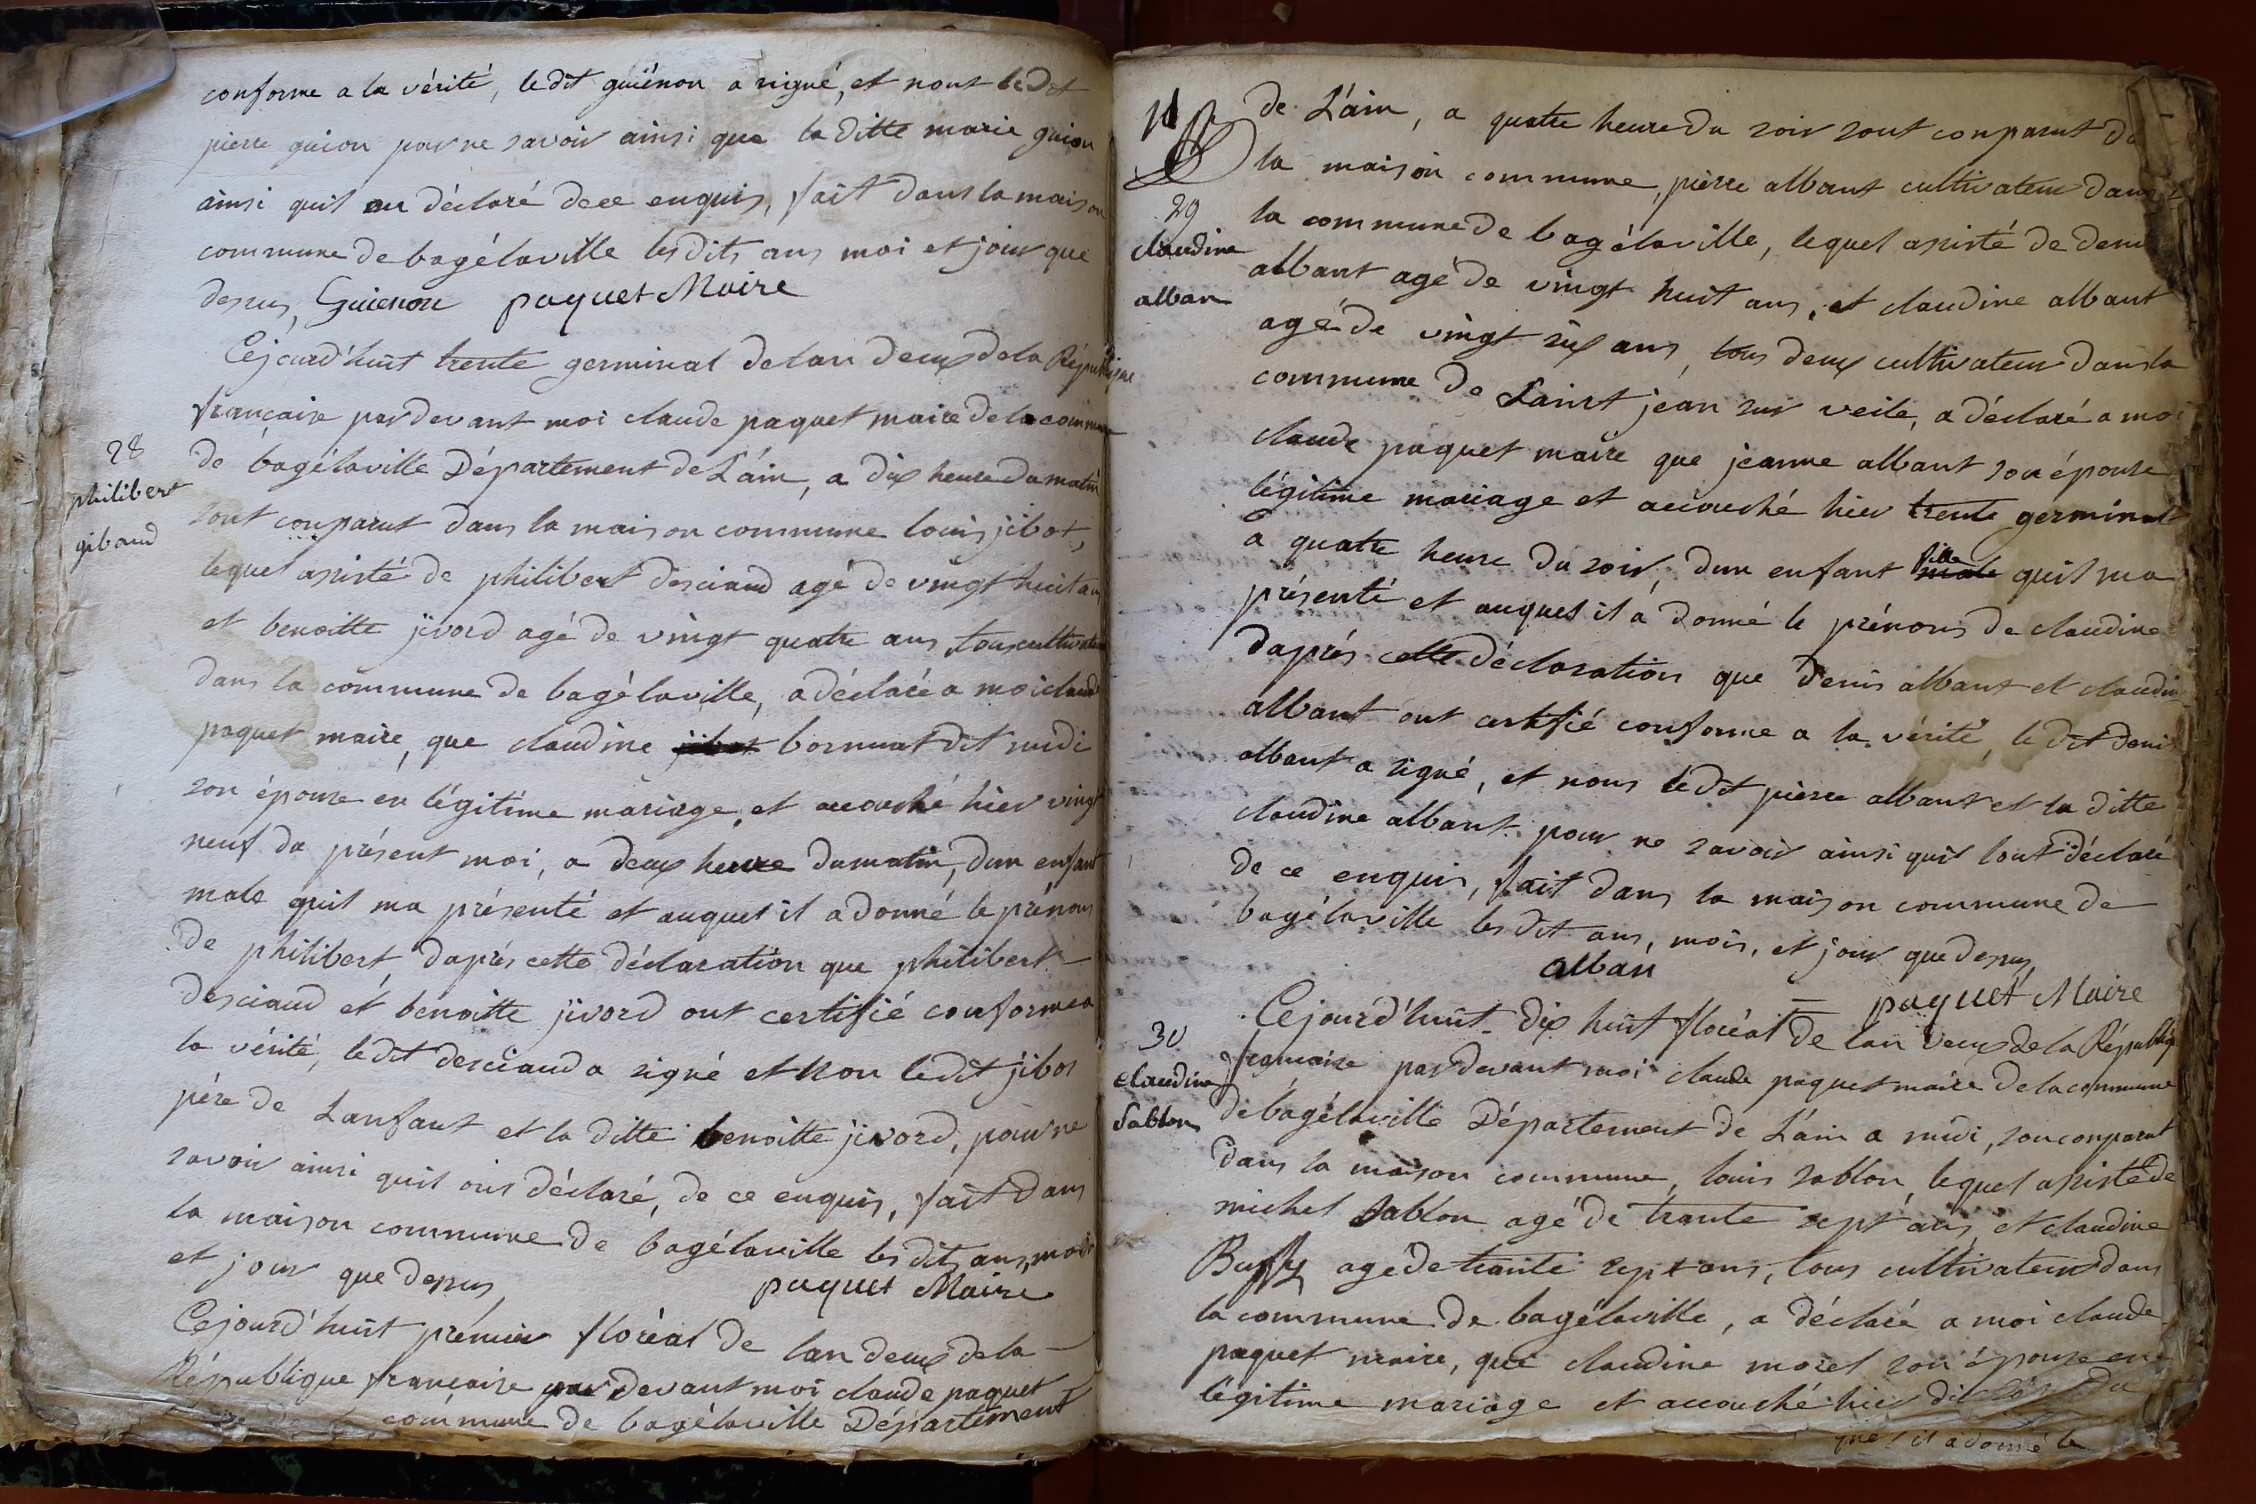 conforme a la vérité, ledit guiénon a signé, et nont ledit
pierre guion pour ne savoir ainsi que la ditte marie guion
ainsi quil on déclaré de ce enquis, fait dans la maison
commune de bagélaville les dits ans moi et jour que
dessus, Guienon paquet Maire
Cejourd'huit trente germinal de lan deux de la République
française par devant moi claude paquet maire de la commune
28
philibert
gibaud
de bagélaville Département de L'ain, a dix heure du matin
sont conparut dans la maison commune louis jibot,
lequel asisté de philibert desciaud agé de vingt huit ans
et benoitte jivord agé de vingt quatre ans, tous cultivateur
dans la commune de bagélaville, a déclaré a moi claude
paquet maire, que claudine jibot bornuat dit rudi
son épouse en légitime mariage, et accouché hier vingt
neuf du présent moi, a deux heure du matin, dun enfant
male quil ma présenté et auquel il a donné le prénons
de philibert, daprés cette déclaration que philibert
desciaud et benoitte jivord ont certifié conforme a
la vérité, ledit desciaud a signé et non ledit jibot
pére de Lanfant et la ditte benoitte jivord, pour ne
savoir ainsi quil ons déclaré, de ce enquis, fait dans
la maison commune de bagélaville les dits ans, mois
et jour que dessus, paquet Maire
Cejourd'huit prémier floréal de lan deux de la
République française par devant moi claude paquet
commune de bagélaville Département
de L'ain, a quatre heure du soir sont conparut
la maison commune, pierre albant cultivateur dans
29
claudine
alban
la commune de bagélaville, lequel asisté de denis
albant agé de vingt huit ans, et claudine albant
agé de vingt six ans, tous deux cultivateur dans la
commune de Saint jean sur veile, a déclaré a moi
claude paquet maire que jeanne albant son épouse
légitime mariage et accouché hier trente germinal
a quatre heure du soir, dun enfant male fille quil ma
présenté et auquel il a donné le prénons de claudine
daprés cette déclaration que denis albant et claudine
albant ont certifié conforme a la vérité, ledit denis
albant a signé, et nous ledit pierre albant et la ditte
claudine albant pour ne savoir ainsi quil lont déclaré
de ce enquis, fait dans la maison commune de
bagélaville les dit ans, mois, et jour que dessus
alban paquet Maire
Cejourd'huit dix huit floréal de lan deux de la République
30
claudine
Sablon
française par devant moi claude paquet maire de la commune
de bagélaville Département de L'ain a midi, son conparut
dans la maison commune, louis sablon, lequel asisté de
michel Sablon agé de trante sept ans, et claudine
Buffy agé de trante sept ans, tous cultivateur dans
la commune de bagélaville, a déclaré a moi claude
paquet maire, que claudine morel son épouse en
légitime mariage et accouché hier du
il a donné le